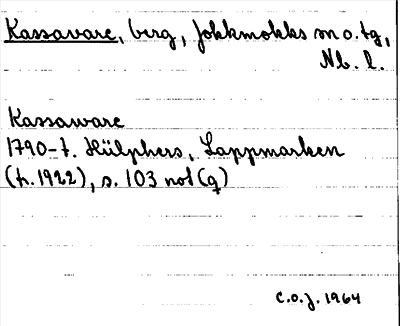 Kassavare, berg, Jokkmokks sn o. tg,
Nb. l.
Kassaware
1790-t. Hülphers, Lappmarken
(tr. 1922), s. 103 not (q)
C.O.J. 1964